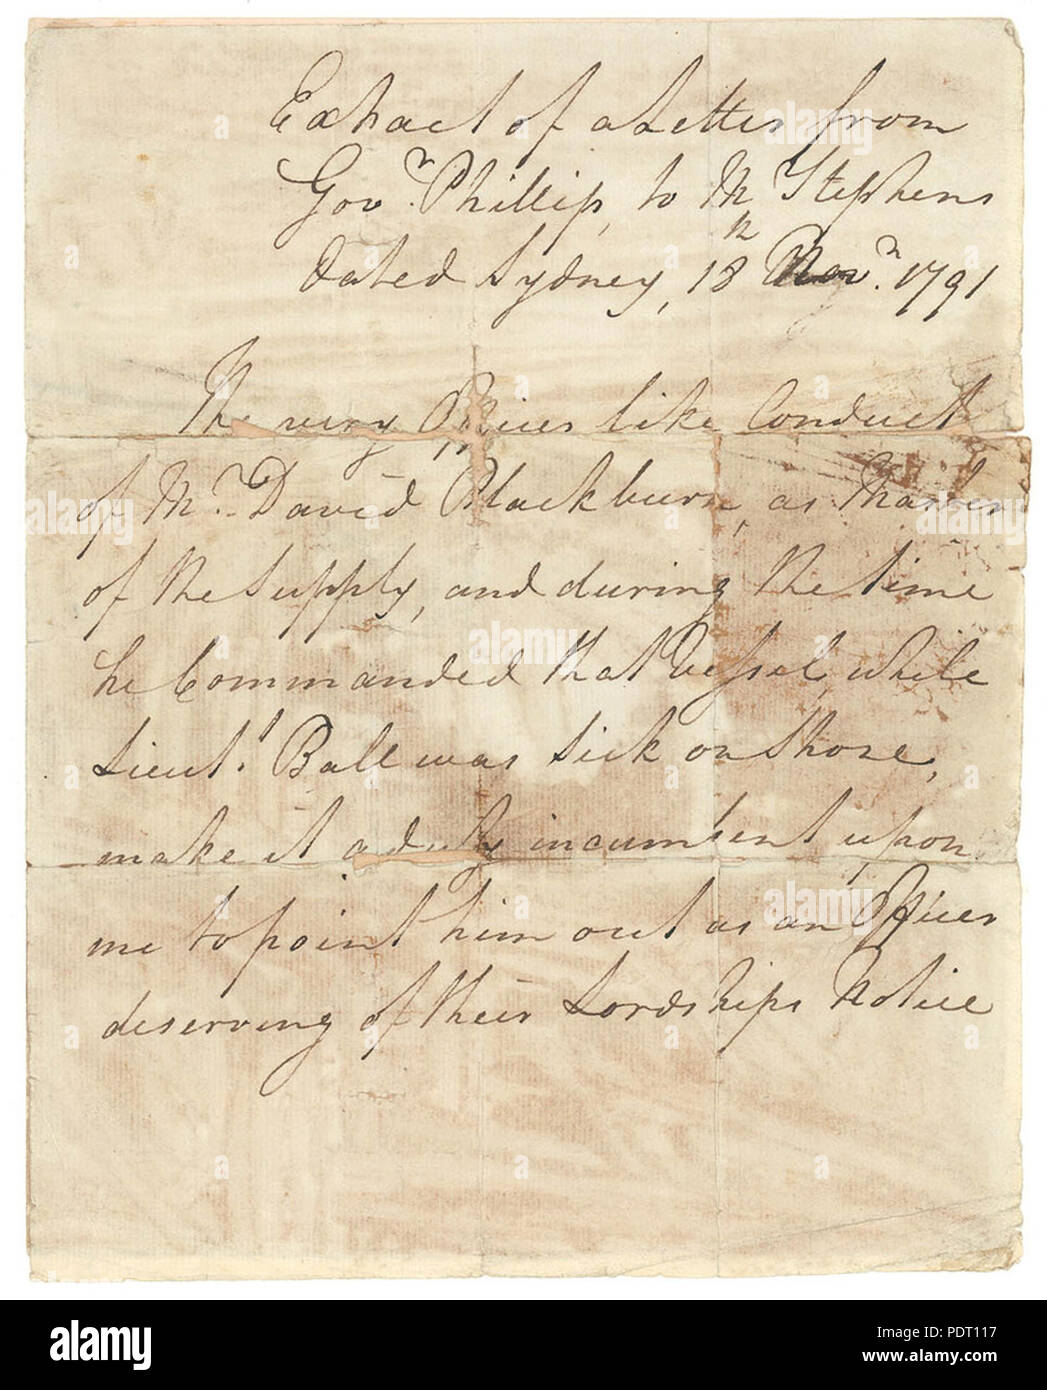 Extract of a Letter from
Gov.r Phillip, to Mr Stephens
dated Sydney, 18th Nov.r 1791
The very Officer like Conduct
of Mr. David Blackburn, as Master
of the Supply, and during the time
he Commanded that Vessel, while
Lieut.t Ball was sick on Shore,
make it a duty incumbent upon
me to point him out as an Officer
deserving of their Lordships Notice
alamy
Image ID: PDT117
www.alamy.com